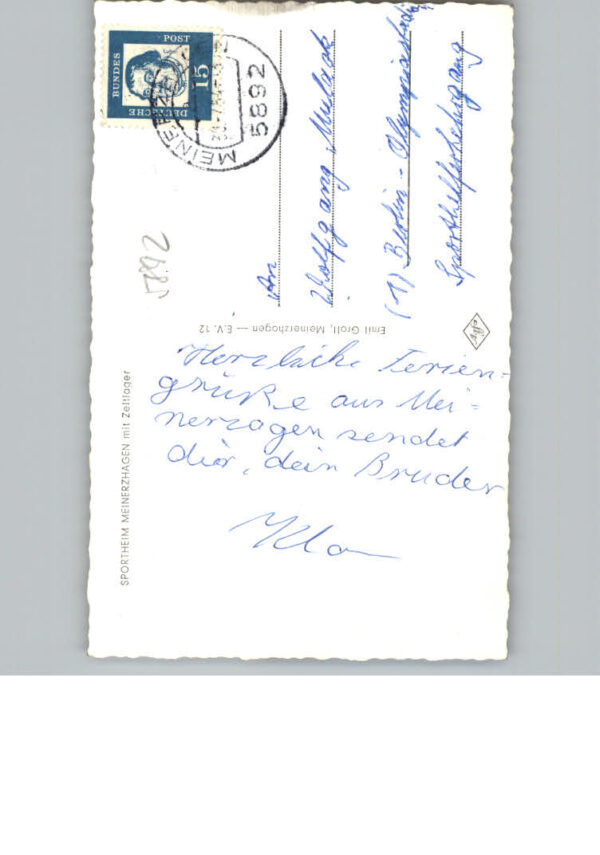 DEUTSCHE
BUNDES
POST
15
5892
5892
An
Wolfgang
(1) Berlin - Olympiastadion
Sporthelferlehrgang
Emil Groll, Meinerzhagen — E.V. 12
Herzliche Ferien-
grüße aus Mei-
nerzagen sendet
dir, dein Bruder
SPORTHEIM MEINERZHAGEN mit Zeltlager